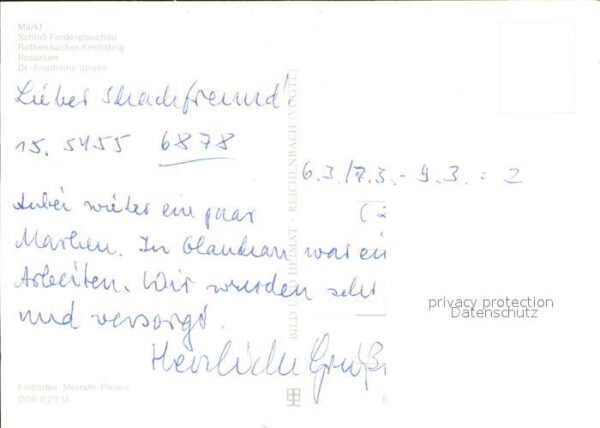 Markt
Schloß Forderglauchau
Rothenbacher Kirchsteig
Rosarium
Dr.-Friedrichs-Straße
Lieber Schachfreund!
15. 5455 6878
6.3./7.3.- 9.3. : 2
Anbei wieder ein paar
Marken. In Glauchau war ein
Arbeiten. Wir wurden sehr
und versorgt.
Herzliche Grüße
BILD HEIMAT REICHENBACH (VOGTL)
privacy protection
Datenschutz
Farbfotos: Plauen
DDR 0,20 M